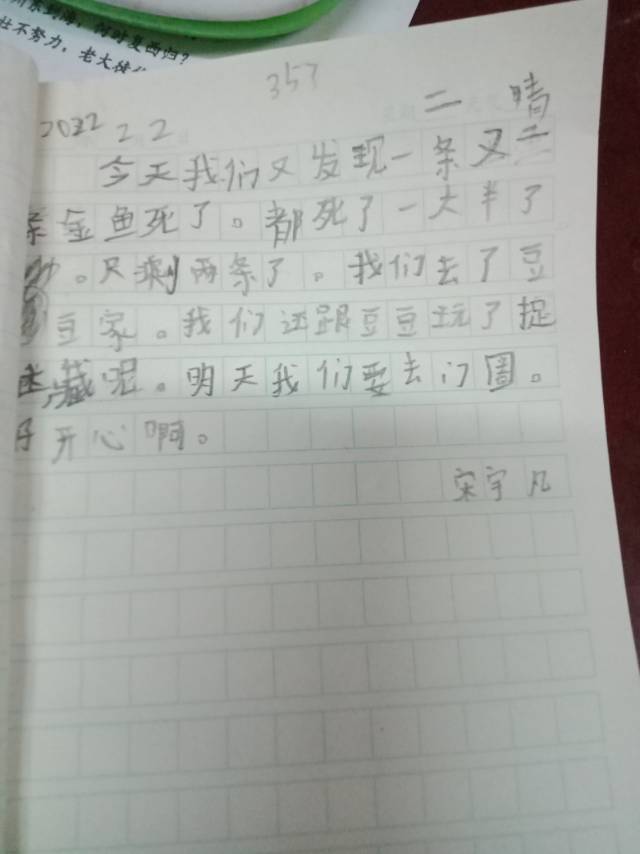 何时复西归?
壮不努力,老大徒
357
2022 2 2 二 晴
今天我们又发现一条又一
条金鱼死了。都死了一大半了
。只剩两条了。我们去了豆
豆家。我们还跟豆豆玩了捉
迷藏呢。明天我们要去门圊。
好开心啊。
宋宇凡